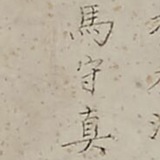 馬守真